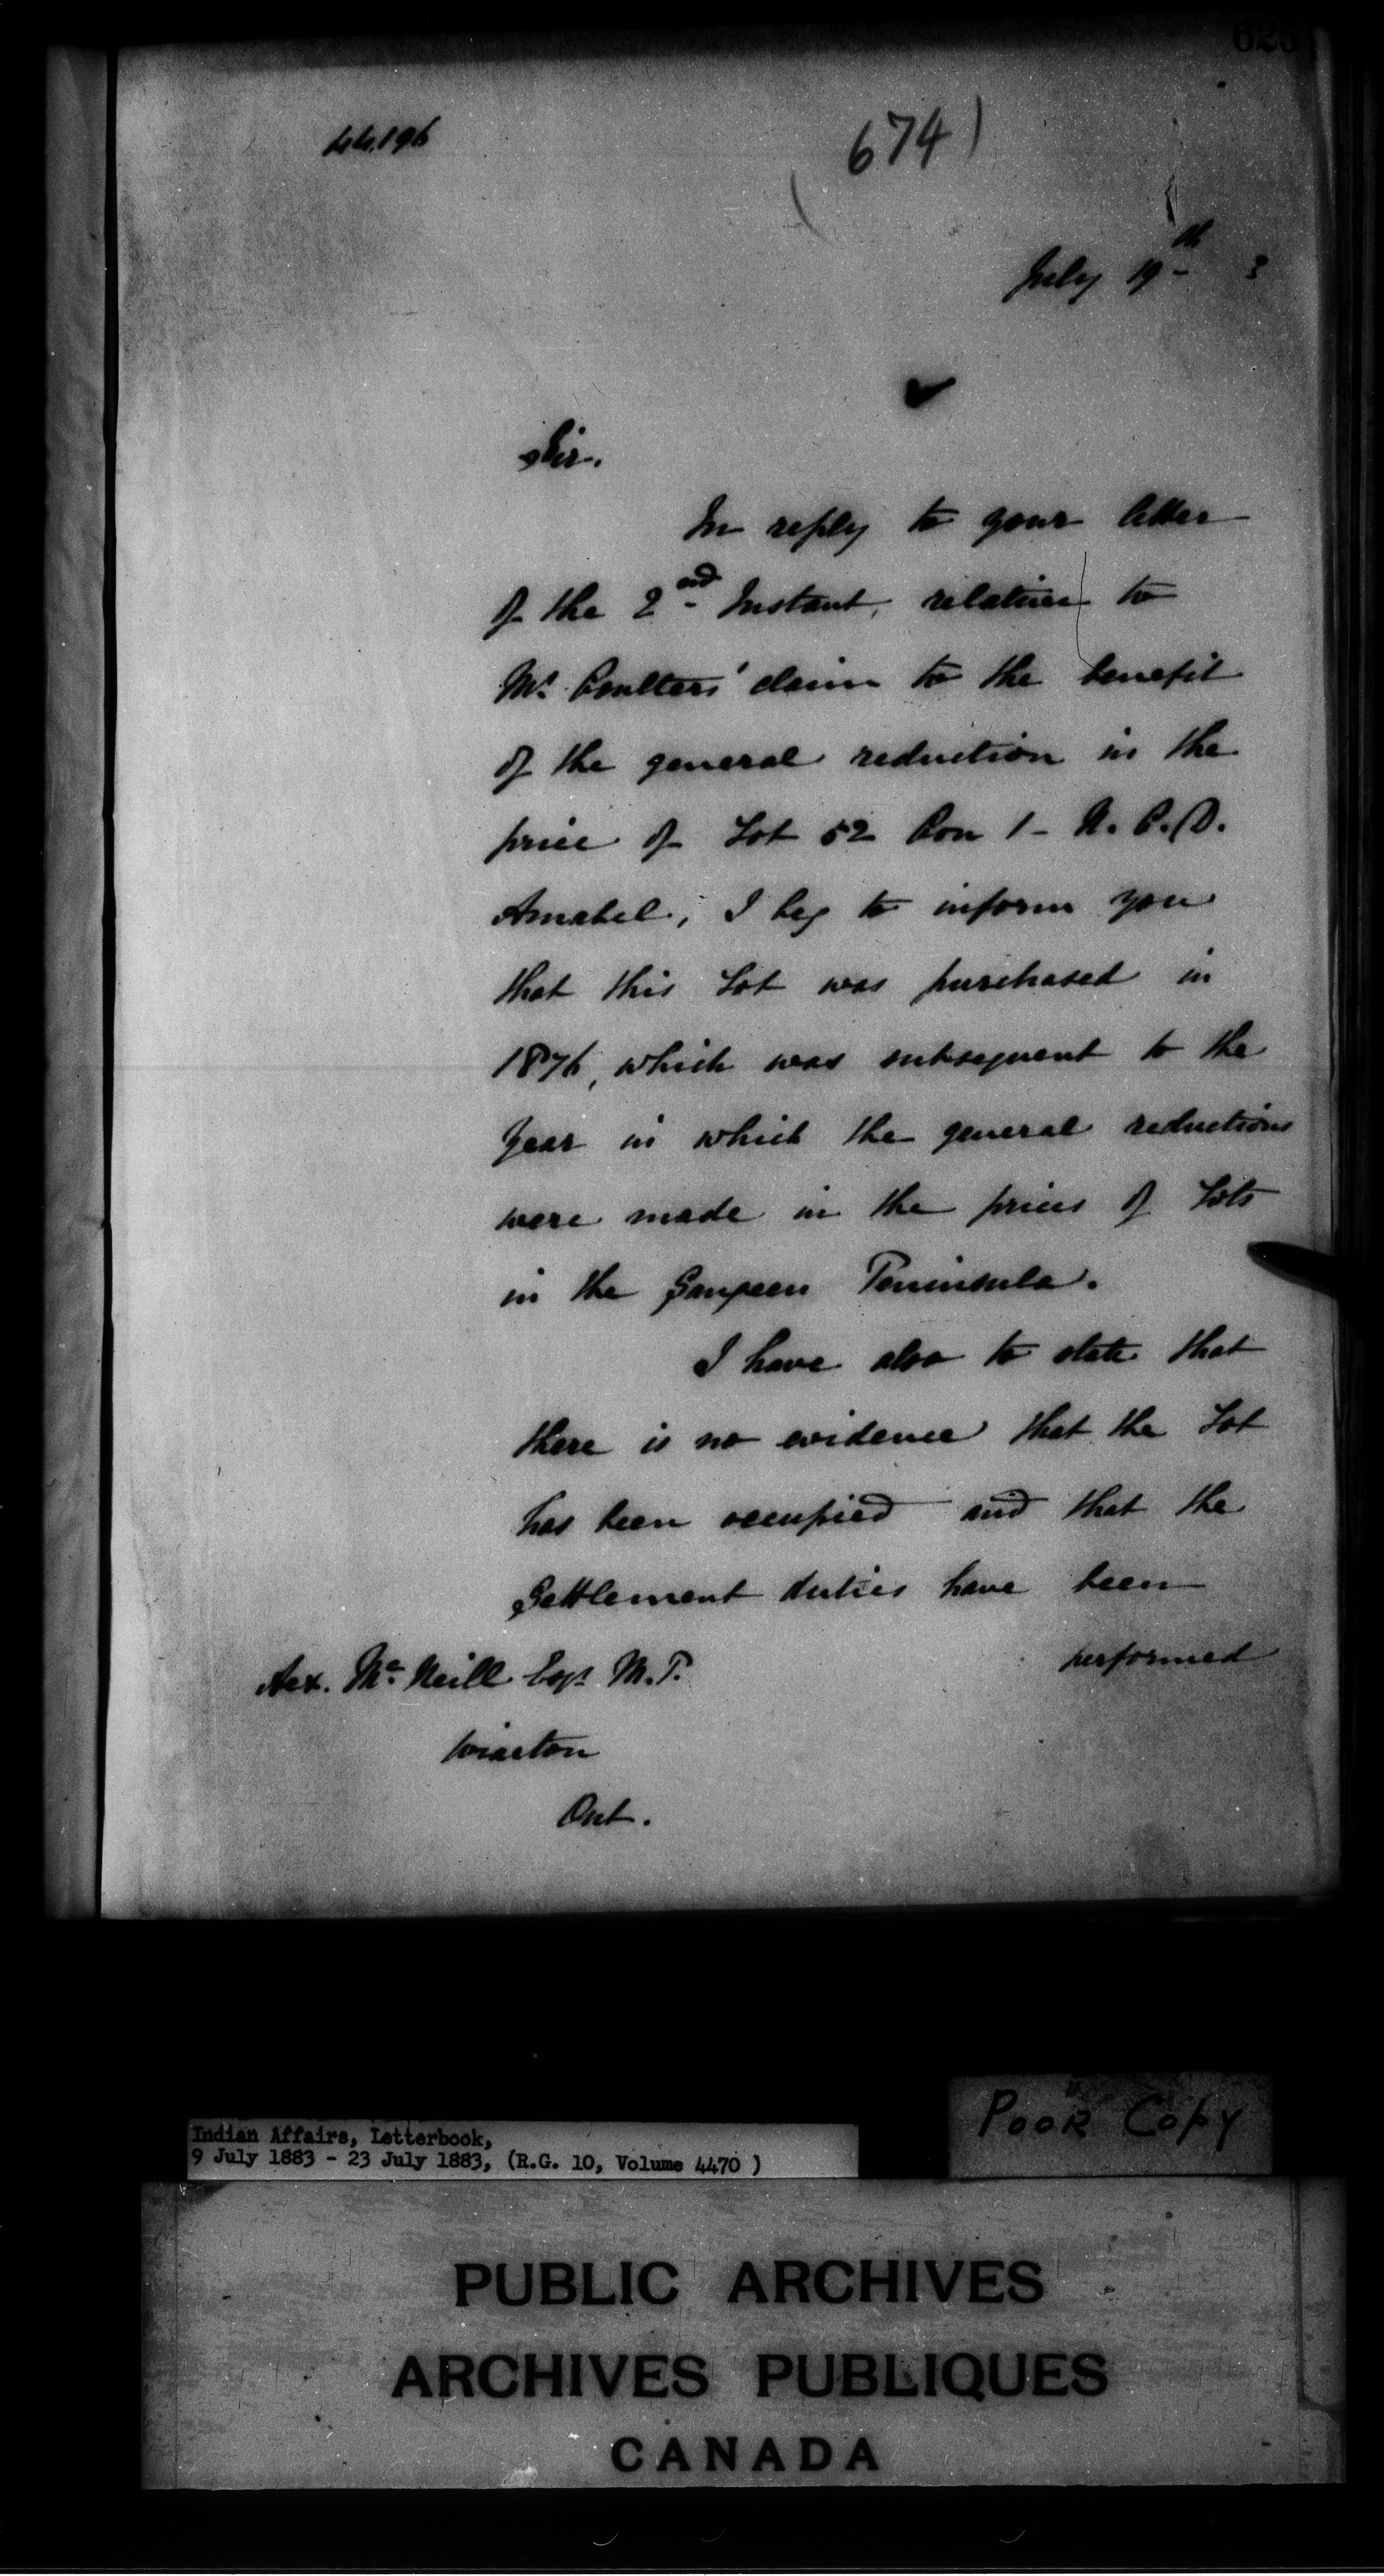 44.196
(674)
July 19th 3
Sir.
In reply to your letter
of the 2nd Instant, relative to
Mr. Coulters' claim to the benefit
of the general reduction in the
price of Lot 52 Con 1 - N. C. D.
Amabel, I beg to inform you
that this Lot was purchased in
1876, which was subsequent to the
Year in which the general reductions
were made in the prices of Lots
in the Saugeen Peninsula.
I have also to state that
there is no evidence that the Lot
has been occupied and that the
Settlement duties have been
performed
Alex. McNeill Esqr M.P.
Wiarton
Ont.
Poor Copy
Indian Affairs, Letterbook,
9 July 1883 - 23 July 1883, (R.G. 10, Volume 4470 )
PUBLIC ARCHIVES
ARCHIVES PUBLIQUES
CANADA